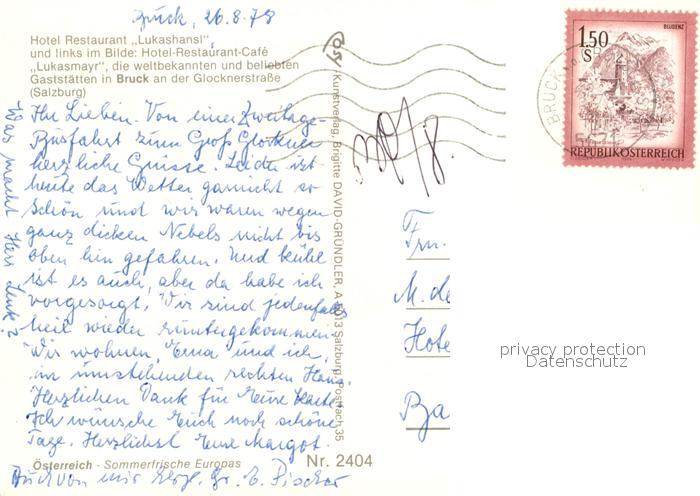 Bruck, 26.8.78
Hotel Restaurant „Lukashansl",
und links im Bilde: Hotel-Restaurant-Café
„Lukasmayr", die weltbekannten und beliebten
Gaststätten in Bruck an der Glocknerstraße
(Salzburg)
Ihr Lieben. Von einer Zweitage-
Busfahrt zum Groß Glockner
herzliche Grüsse. Leider ist
heute das Wetter garnicht so
schön und wir waren wegen
ganz dicken Nebels nicht bis
oben hin gefahren. Und kühl
ist es auch, aber da habe ich
vorgesorgt. Wir sind jedenfalls
heil wieder runtergekommen.
Wir wohnen, Erna und ich,
im umstehenden rechten Haus.
Herzlichen Dank für Eure Karte.
Ich wünsche Euch noch schöne
Tage. Herzlichst Eure Margot.
Österreich - Sommerfrische Europas
Nr. 2404
Auch von mir herzl. Gr. E. Fischer
Was macht Herr
Kunstverlag, Brigitte DAVID-GRÜNDLER, A 5013 Salzburg, Postfach 35
BLUDENZ
1.50
S
REPUBLIK ÖSTERREICH
BRUCK
Frn.
M. de
Hote
Ba
privacy protection
Datenschutz